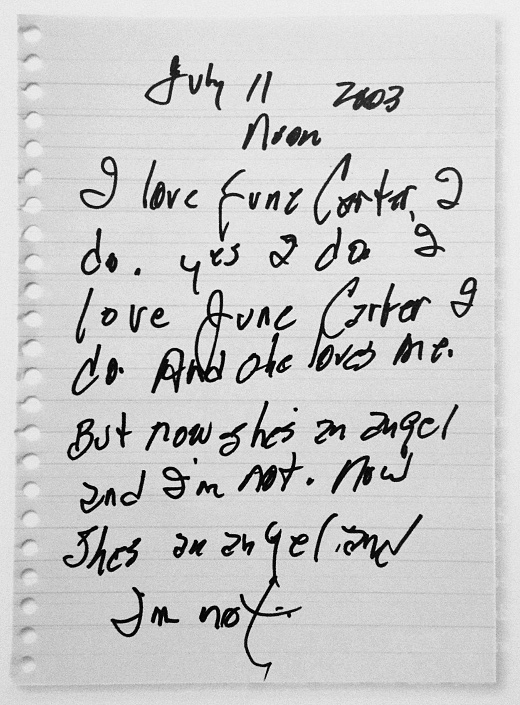 July 11 2003
Noon
I love June Carter, I
do. yes I do. I
love June Carter I
do. And she loves me.
But now shes an angel
and I'm not. Now
Shes an angel and
I'm not.